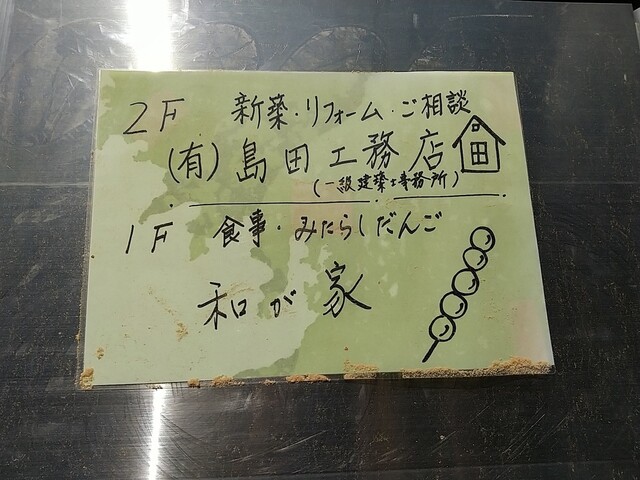 2F 新築・リフォーム・ご相談
(有)島田工務店
(一級建築士事務所)
1F 食事・みたらしだんご
和が家